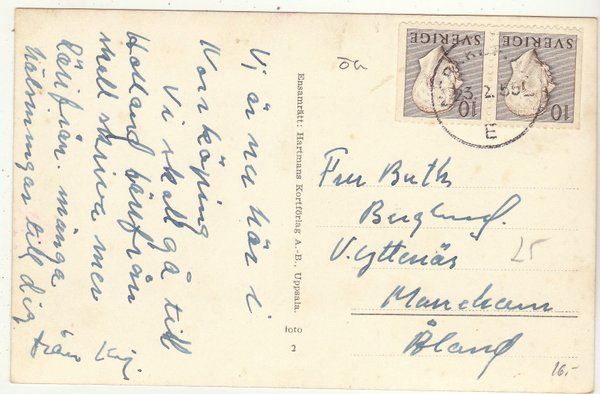 Vi är nu här i
Norrköping
Vi skall gå till
Holland härifrån
skall skriva mer
därifrån. många
hälsningar till dig
från
Ensamrätt: Hartmans Kortförlag A.-B., Uppsala.
foto
2
SVERIGE
10
SVERIGE
10
Fru Ruth
Berglund.
V. Yttenäs
Mariehamn
Åland
25
16.-